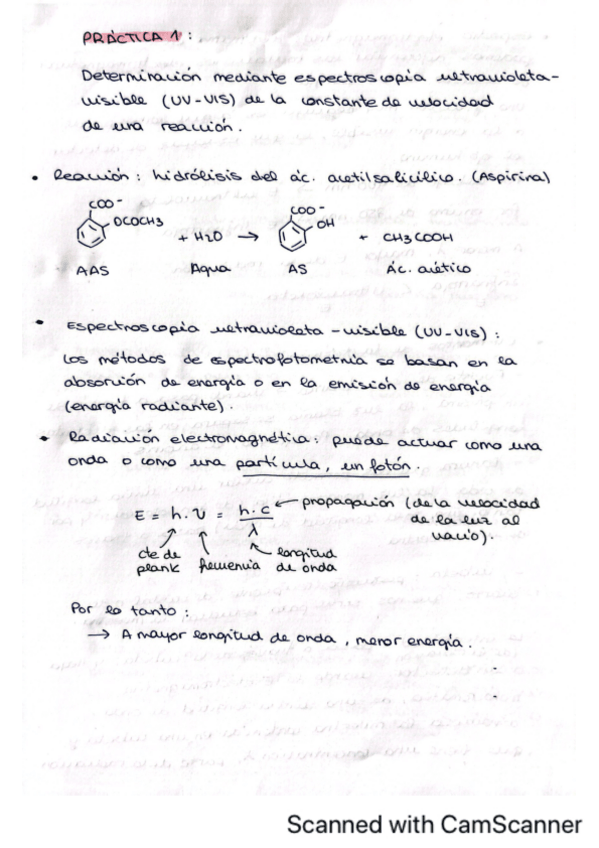 PRÁCTICA 1 :
Determinación mediante espectroscopia ultravioleta-
visible (UV-VIS) de la constante de velocidad
de una reacción.
• Reacción : hidrólisis del ác. acetilsalicílico. (Aspirina)
COO-
OCOCH3
+ H2O →
COO-
OH
+ CH3COOH
AAS Agua AS Ác. acético
• Espectroscopia ultravioleta - visible (UV-VIS) :
Los métodos de espectrofotometría se basan en la
absorción de energía o en la emisión de energía
(energía radiante).
• Radiación electromagnética : puede actuar como una
onda o como una partícula, un fotón.
E = h. ν = h. c / λ ← propagación (de la velocidad
de la luz al
vacío).
cte de plank
frecuencia
longitud de onda
Por lo tanto :
→ A mayor longitud de onda, menor energía.
Scanned with CamScanner